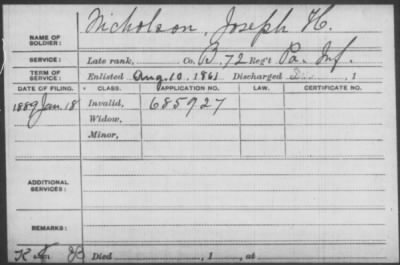 NAME OF SOLDIER: Nicholson, Joseph H.
SERVICE: Late rank, Co. B. 72 Reg't Pa. Inf.
TERM OF SERVICE: Enlisted Aug. 10. 1861 Discharged , 1
DATE OF FILING. CLASS. APPLICATION NO. LAW. CERTIFICATE NO.
1889 Jan. 18 Invalid, 685927
Widow,
Minor,
ADDITIONAL SERVICES:
REMARKS:
Died , 1 , at